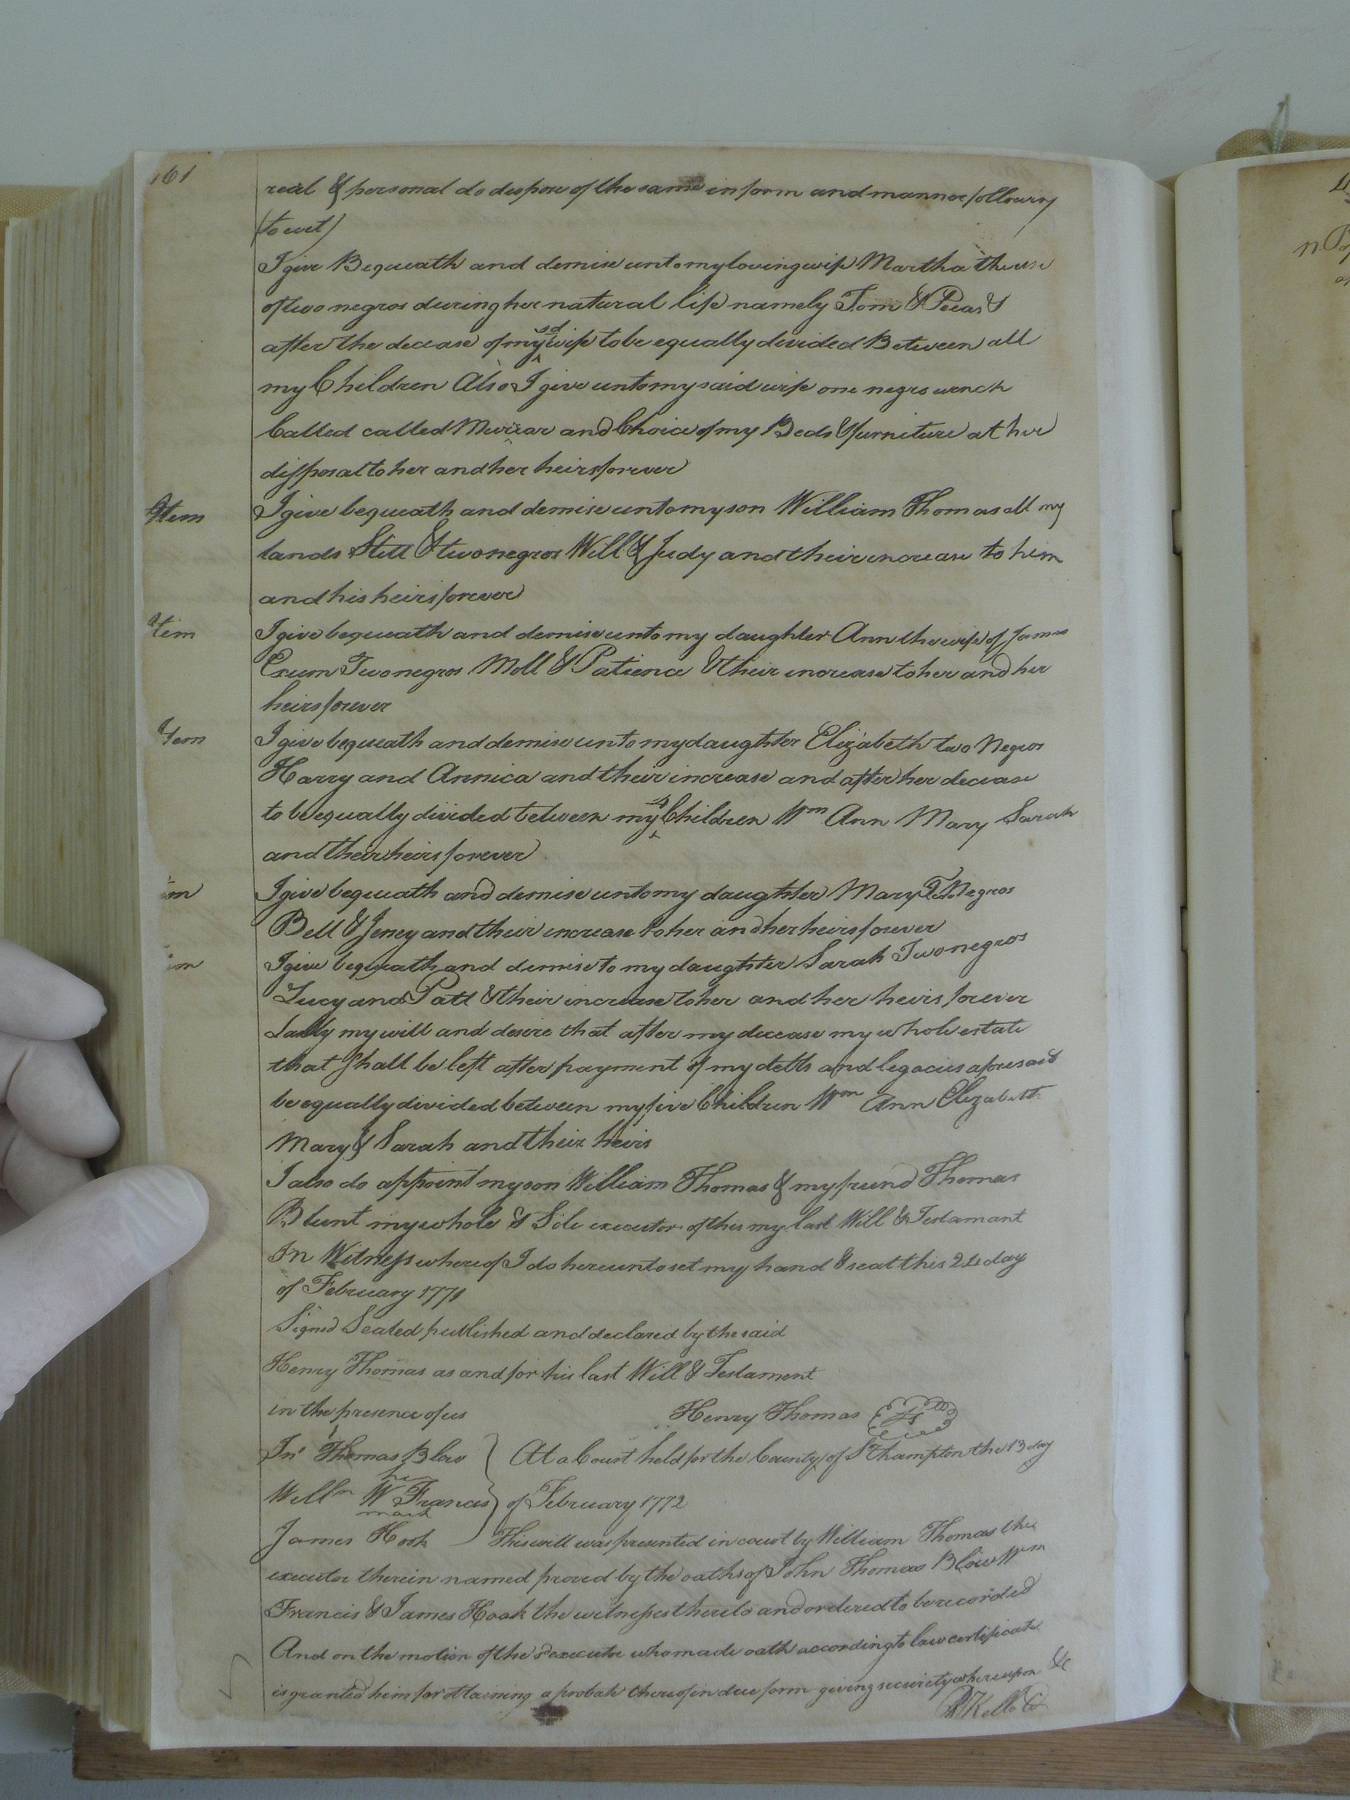 161
real & personal do dispose of the same in form and manner following
(to wit)
I give Bequeath and demise unto my loving wife Martha the use
of two negros during her natural life namely Tom & Peas &
after the decease of my sd wife to be equally divided Between all
my Children Also I give unto my said wife one negro wench
Called called and Choice of my Beds & furniture at her
disposal to her and her heirs forever
Item I give bequeath and demise unto my son William Thomas all my
lands Still & two negros Will & Judy and their increase to him
and his heirs forever
Item I give bequeath and demise unto my daughter Ann the wife of James
Exum Two negros Moll & Patience & their increase to her and her
heirs forever
Item I give bequeath and demise unto my daughter Elizabeth two Negros
Harry and Annica and their increase and after her decease
to be equally divided between my 4 Children Wm Ann Mary Sarah
and their heirs forever
I give bequeath and demise unto my daughter Mary Negros
Bell & Jeney and their increase to her and her heirs forever
I give bequeath and demise to my daughter Sarah Two negros
Lucy and Patt & their increase to her and her heirs forever
Lastly my will and desire that after my decease my whole estate
that shall be left after payment of my debts and legacies aforesaid
be equally divided between my five Children Wm Ann Elizabeth
Mary & Sarah and their heirs
I also do appoint my son William Thomas & my friend Thomas
Blunt my whole & Sole executor of this my last Will & Testamant
In Witness whereof I do hereunto set my hand & seal this 24 day
of February 1771
Signed Sealed published and declared by the said
Henry Thomas as and for his last Will & Testament
in the presence of us
Henry Thomas LS
Jno Thomas Blow
Willm W Francis
his
mark
James Hook
At a Court held for the County of S Thampton the 13 day
of February 1772
This will was presented in court by William Thomas the
executor therein named proved by the oaths of John Thomas Blow Wm
Francis & James Hook the witnesses thereto and ordered to be recorded
And on the motion of the sd executor who made oath according to law certificate
is granted him for obtaining a probate thereof in due form giving security whereupon &c
R Kello Cl